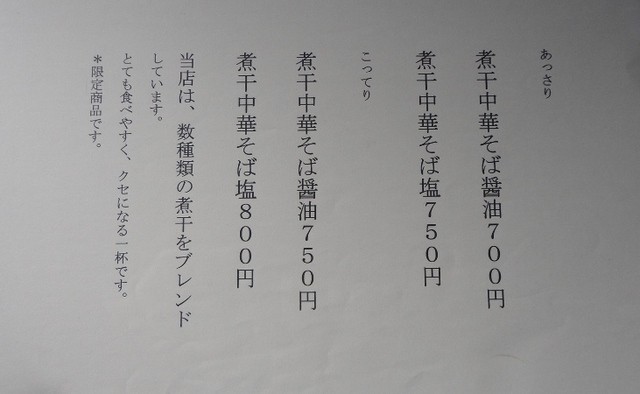 あっさり
煮干中華そば醤油７００円
煮干中華そば塩７５０円
こってり
煮干中華そば醤油７５０円
煮干中華そば塩８００円
当店は、数種類の煮干をブレンド
しています。
とても食べやすく、クセになる一杯です。
＊限定商品です。